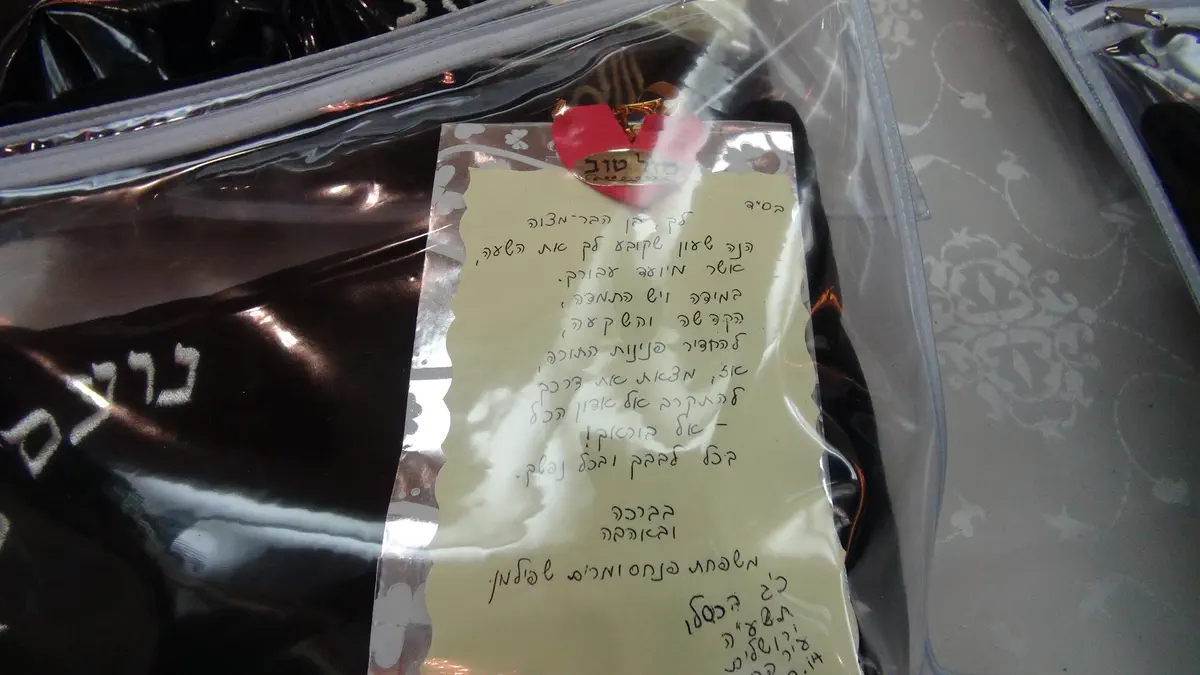 מזל טוב
בס"ד
לך בן הבר-מצוה
הנה שעון שקובע לך את השעה,
אשר מיועד עבורך.
במידה ויש התמדה,
הקדשה והשקעה,
להחדיר פנינות התורה,
אז, מצאת את דרכך
להתקרב אל אדון הכל
- אל בוראך!
בכל לבבך ובכל נפשך.
בברכה
ובאהבה
משפחת פנחס ומרים שפילמן.
כ"ג בכסלו
תשע"ה
ירושלים
עיר
נועם